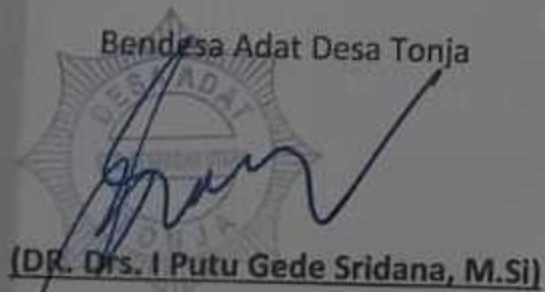 Bendesa Adat Desa Tonja
DESA ADAT
TONJA
(DR. Drs. I Putu Gede Sridana, M.Si)